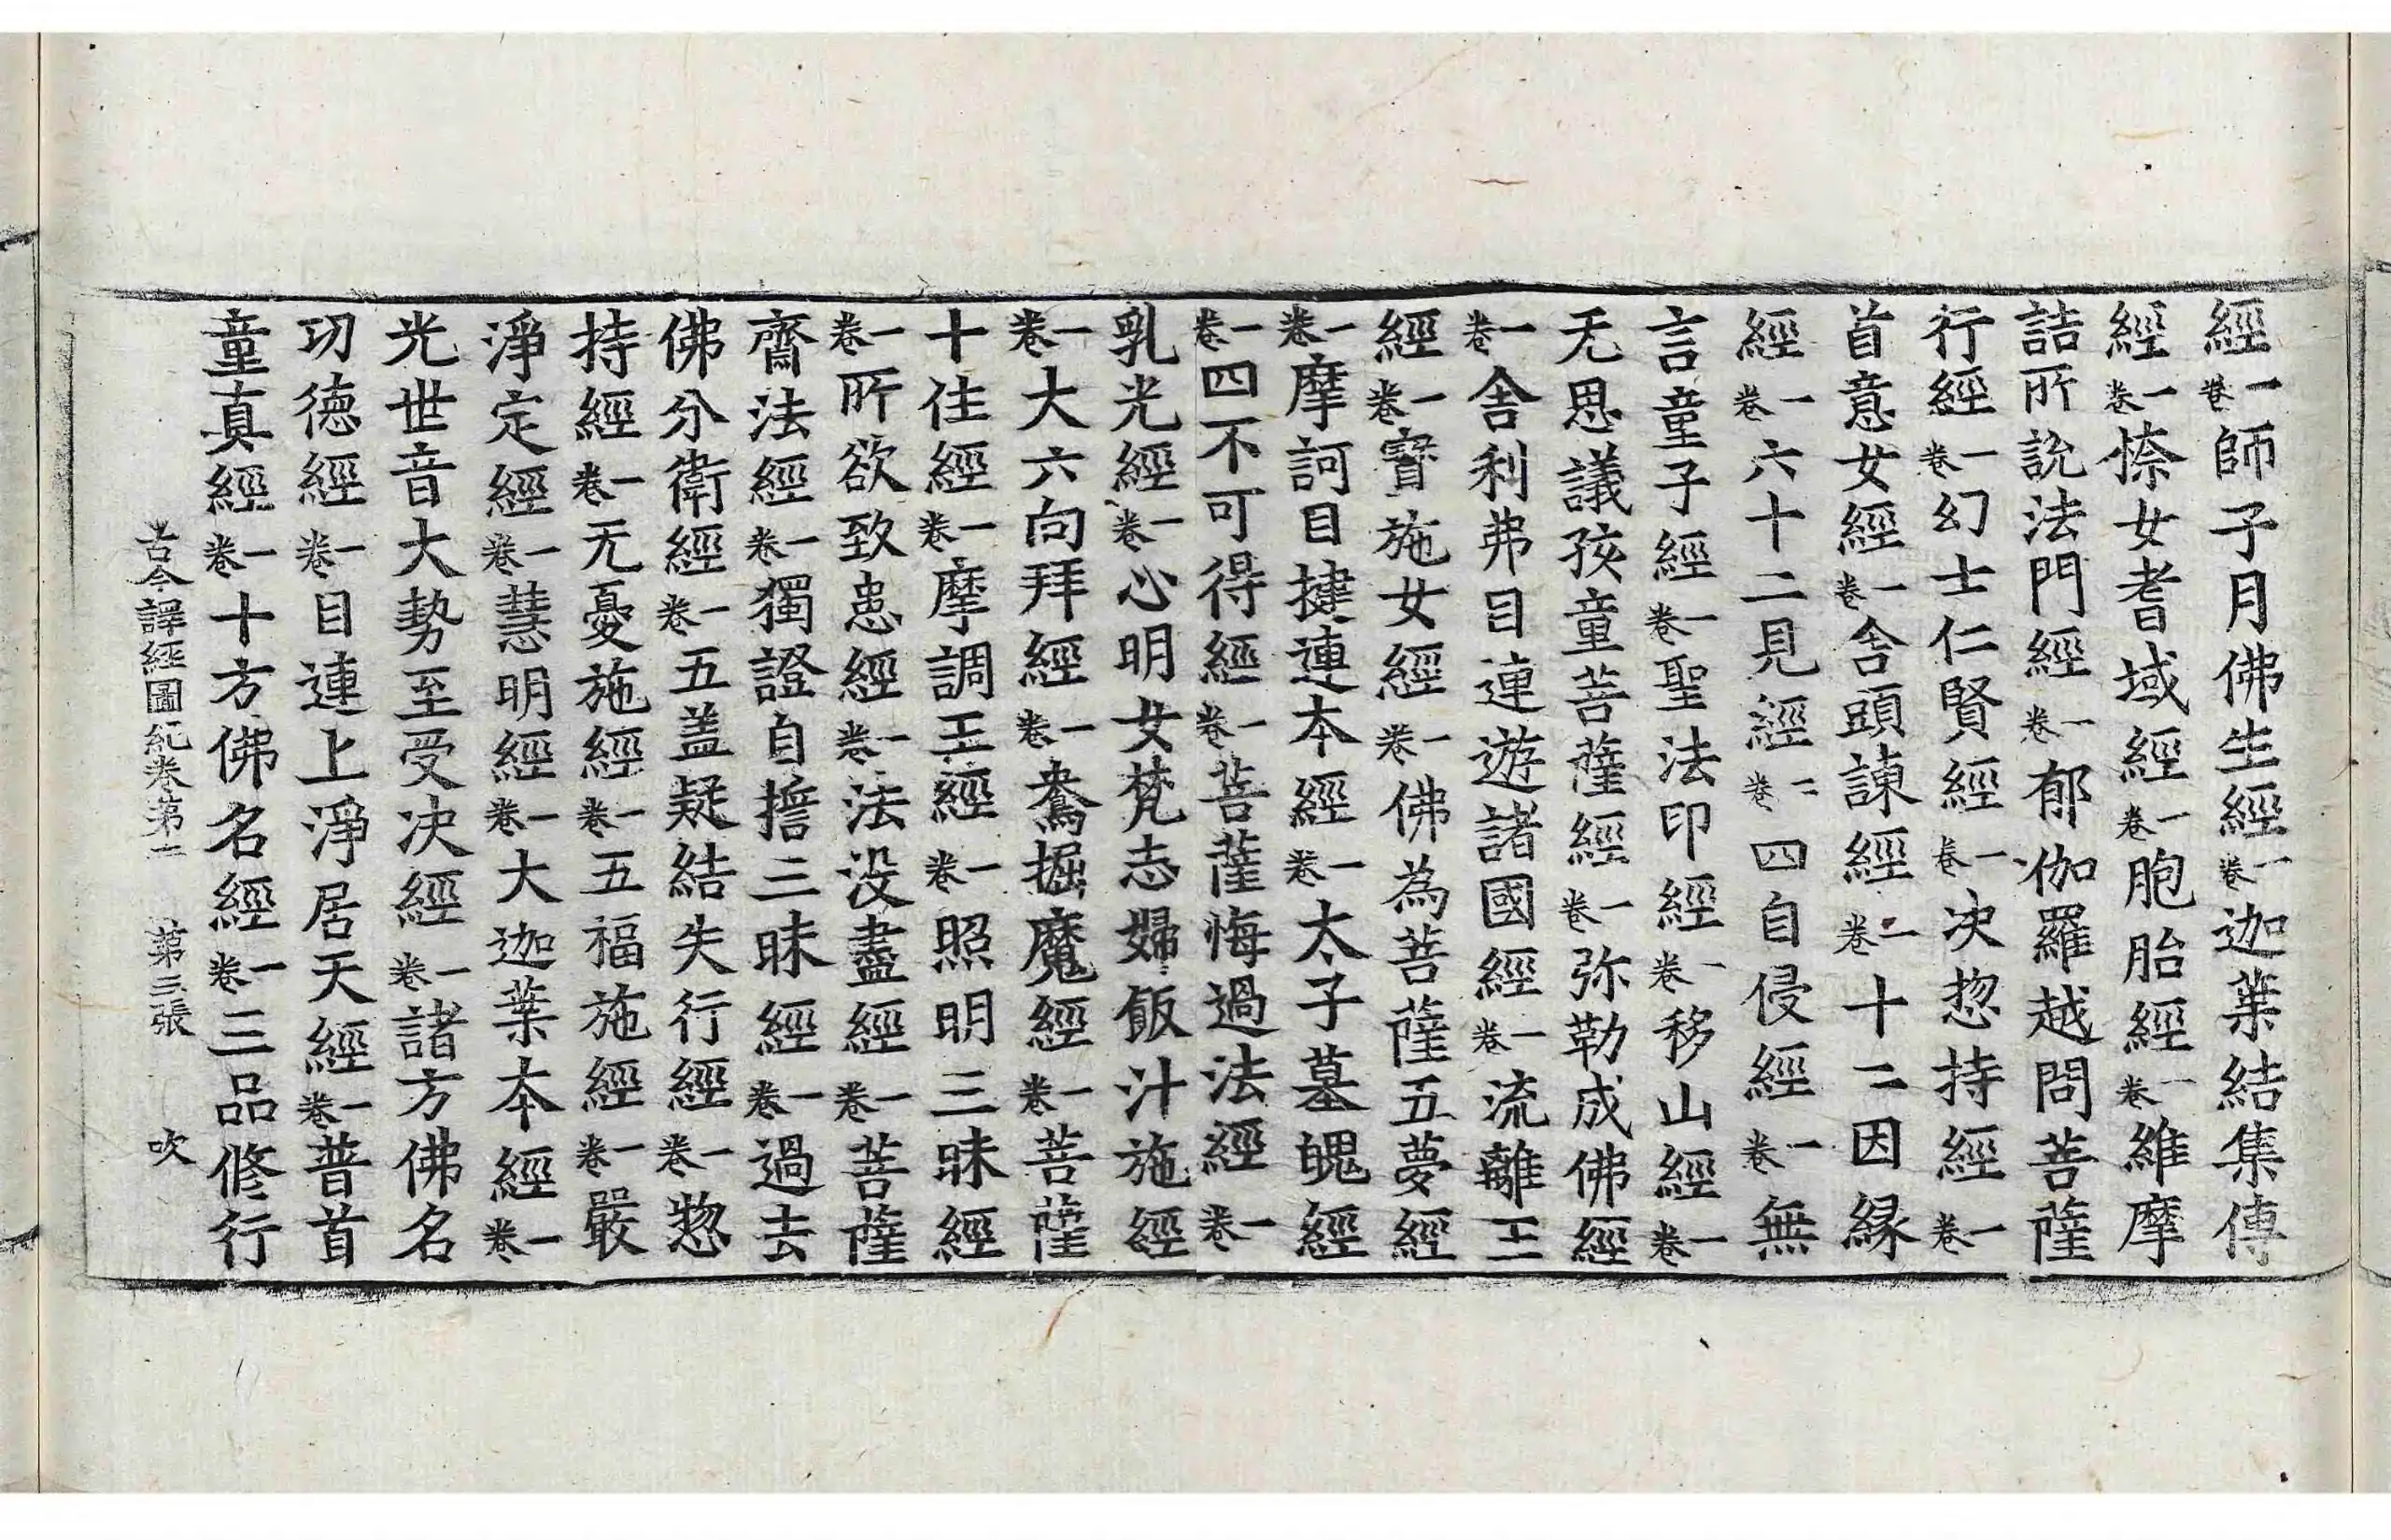 經一卷師子月佛生經一卷迦葉結集傳
經一卷㮈女耆域經一卷胞胎經一卷維摩
詰所說法門經一卷郁伽羅越問菩薩
行經一卷幻士仁賢經一卷決惣持經一卷
首意女經一卷舍頭諫經一卷十二因緣
經一卷六十二見經二卷四自侵經一卷無
言童子經一卷聖法印經一卷移山經一卷
无思議孩童菩薩經一卷弥勒成佛經
一卷舍利弗目連遊諸國經一卷流離王
經一卷寶施女經一卷佛為菩薩五夢經
一卷摩訶目揵連本經一卷太子墓魄經
一卷四不可得經一卷菩薩悔過法經一卷
乳光經一卷心明女梵志婦飯汁施經
一卷大六向拜經一卷鴦掘魔經一卷菩薩
十住經一卷摩調王經一卷照明三昧經
一卷所欲致患經一卷法没盡經一卷菩薩
齋法經一卷獨證自誓三昧經一卷過去
佛分衛經一卷五盖疑結失行經一卷惣
持經一卷无憂施經一卷五福施經一卷嚴
淨定經一卷慧明經一卷大迦葉本經一卷
光世音大勢至受决經一卷諸方佛名
功德經一卷目連上淨居天經一卷普首
童真經一卷十方佛名經一卷三品修行
古今譯經圖紀卷第二 第三張 吹